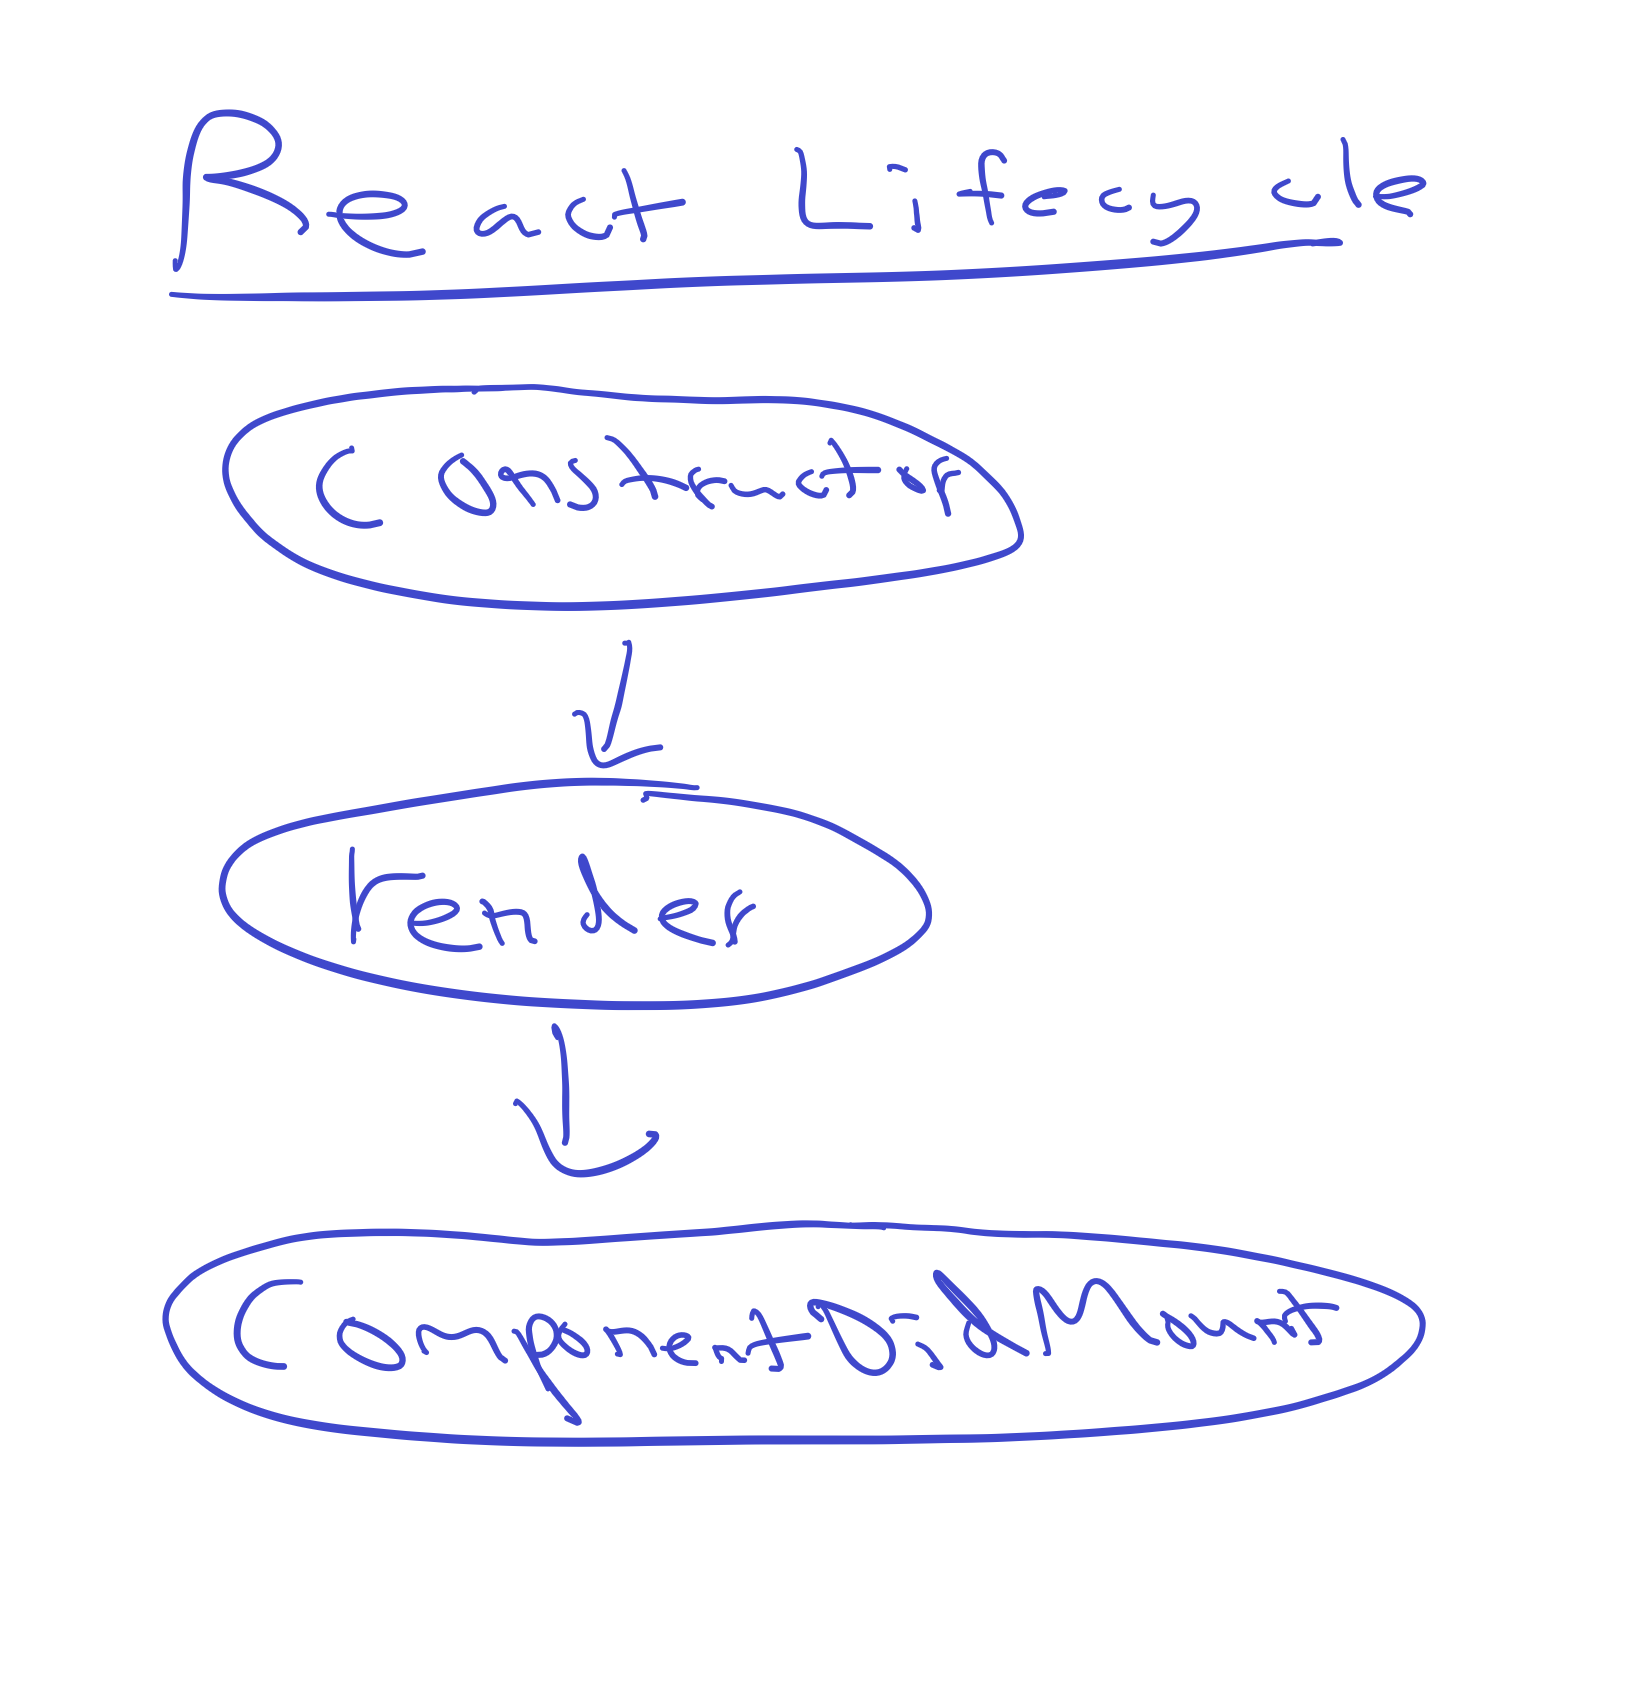 React Lifecycle
Constructor
render
ComponentDidMount